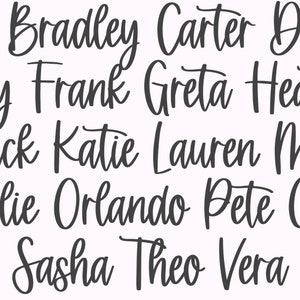 Bradley Carter D
y Frank Greta He
ck Katie Lauren M
lie Orlando Pete
Sasha Theo Vera